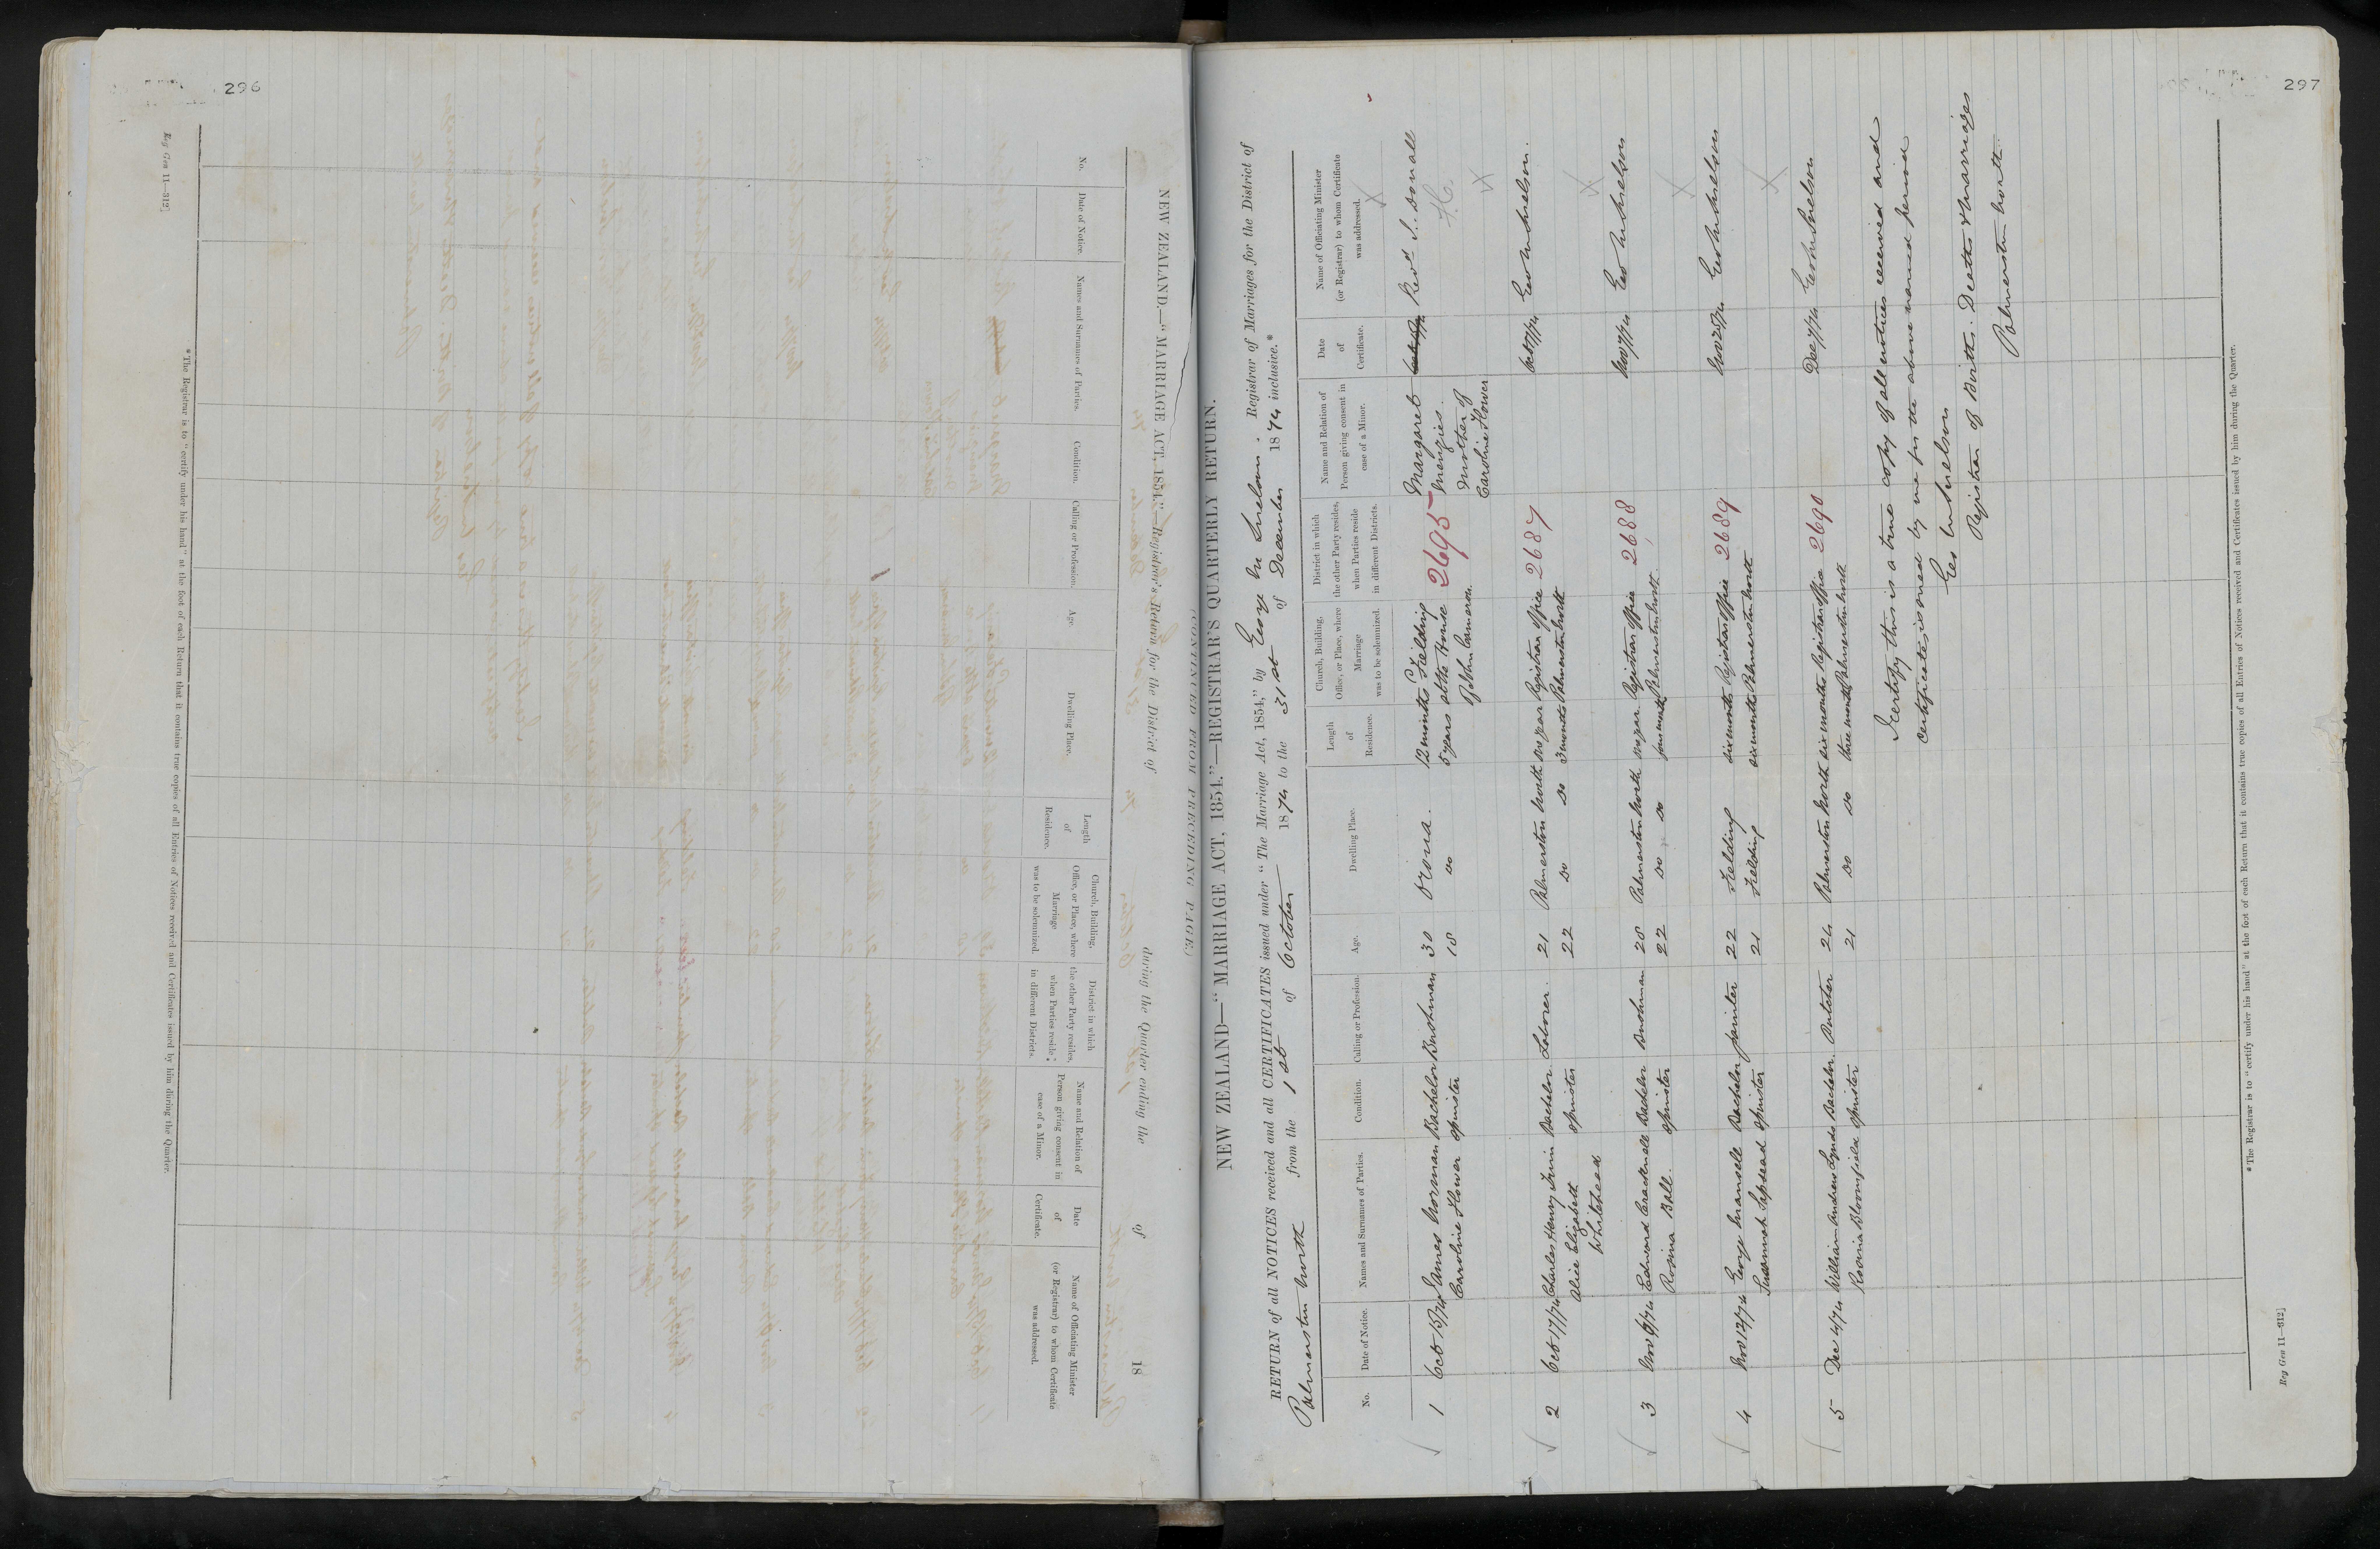 296
Reg Gen 11—312]
NEW ZEALAND.—"MARRIAGE ACT, 1854."—Registrar's Return for the District of
during the Quarter ending the
of
18
(CONTINUED FROM PRECEDING PAGE.)
No.
Date of Notice.
Names and Surnames of Parties.
Condition.
Calling or Profession.
Age.
Dwelling Place.
Length of Residence.
Church, Building, Office, or Place, where Marriage was to be solemnized.
District in which the other Party resides, when Parties reside in different Districts.
Name and Relation of Person giving consent in case of a Minor.
Date of Certificate.
Name of Officiating Minister (or Registrar) to whom Certificate was addressed.
*The Registrar is to "certify under his hand" at the foot of each Return that it contains true copies of all Entries of Notices received and Certificates issued by him during the Quarter.
297
NEW ZEALAND—"MARRIAGE ACT, 1854."—REGISTRAR'S QUARTERLY RETURN.
RETURN of all NOTICES received and all CERTIFICATES issued under "The Marriage Act, 1854," by George M Snelson. Registrar of Marriages for the District of
Palmerston North from the 1st of October 1874 to the 31st of December 1874 inclusive.*
No.
Date of Notice.
Names and Surnames of Parties.
Condition.
Calling or Profession.
Age.
Dwelling Place.
Length of Residence.
Church, Building, Office, or Place, where Marriage was to be solemnized.
District in which the other Party resides, when Parties reside in different Districts.
Name and Relation of Person giving consent in case of a Minor.
Date of Certificate.
Name of Officiating Minister (or Registrar) to whom Certificate was addressed.
1 Oct 15/74 James Norman Bachelor Bushman 30 Oroua. 12 months Fielding 2695 Margaret Revd J. Donall
Caroline Flower Spinster 18 do 5 years at the House Menzies.
of John Cameron. Mother of
Caroline Flower
2 Oct 17/74 Charles Henry Bachelor. Laborer. 21 Palmerston North one year Registrar Office 2687 Oct 17/74 Geo M Snelson.
Alice Elizabeth Spinster 22 do do 3 months Palmerston North
Whitehead
3 Nov 9/74 Edward Bachelor Bushman 28 Palmerston North one year. Registrar Office 2688 Nov 9/74 Geo M Snelson
Rosina Ball. Spinster 22 do do months Palmerston North
4 Nov 12/74 George Mansell Bachelor Painter 22 Fielding six months Registrar Office 2689 Nov 25/74 Geo M Snelson
Susannah Spinster 21 Fielding six months Palmerston North
5 Dec 4/74 William Andrew Lynds Bachelor. Butcher 24 Palmerston North six months Registrar Office 2690 Dec 7/74 Geo M Snelson
Bloomfield Spinster 21 do do three months Palmerston North
I certify this is a true copy of all entries received and
certificates issued by me for the above named period
Geo M Snelson
Registrar of Births. Deaths & Marriages
Palmerston North.
*The Registrar is to "certify under his hand" at the foot of each Return that it contains true copies of all Entries of Notices received and Certificates issued by him during the Quarter.
Reg Gen 11—312]